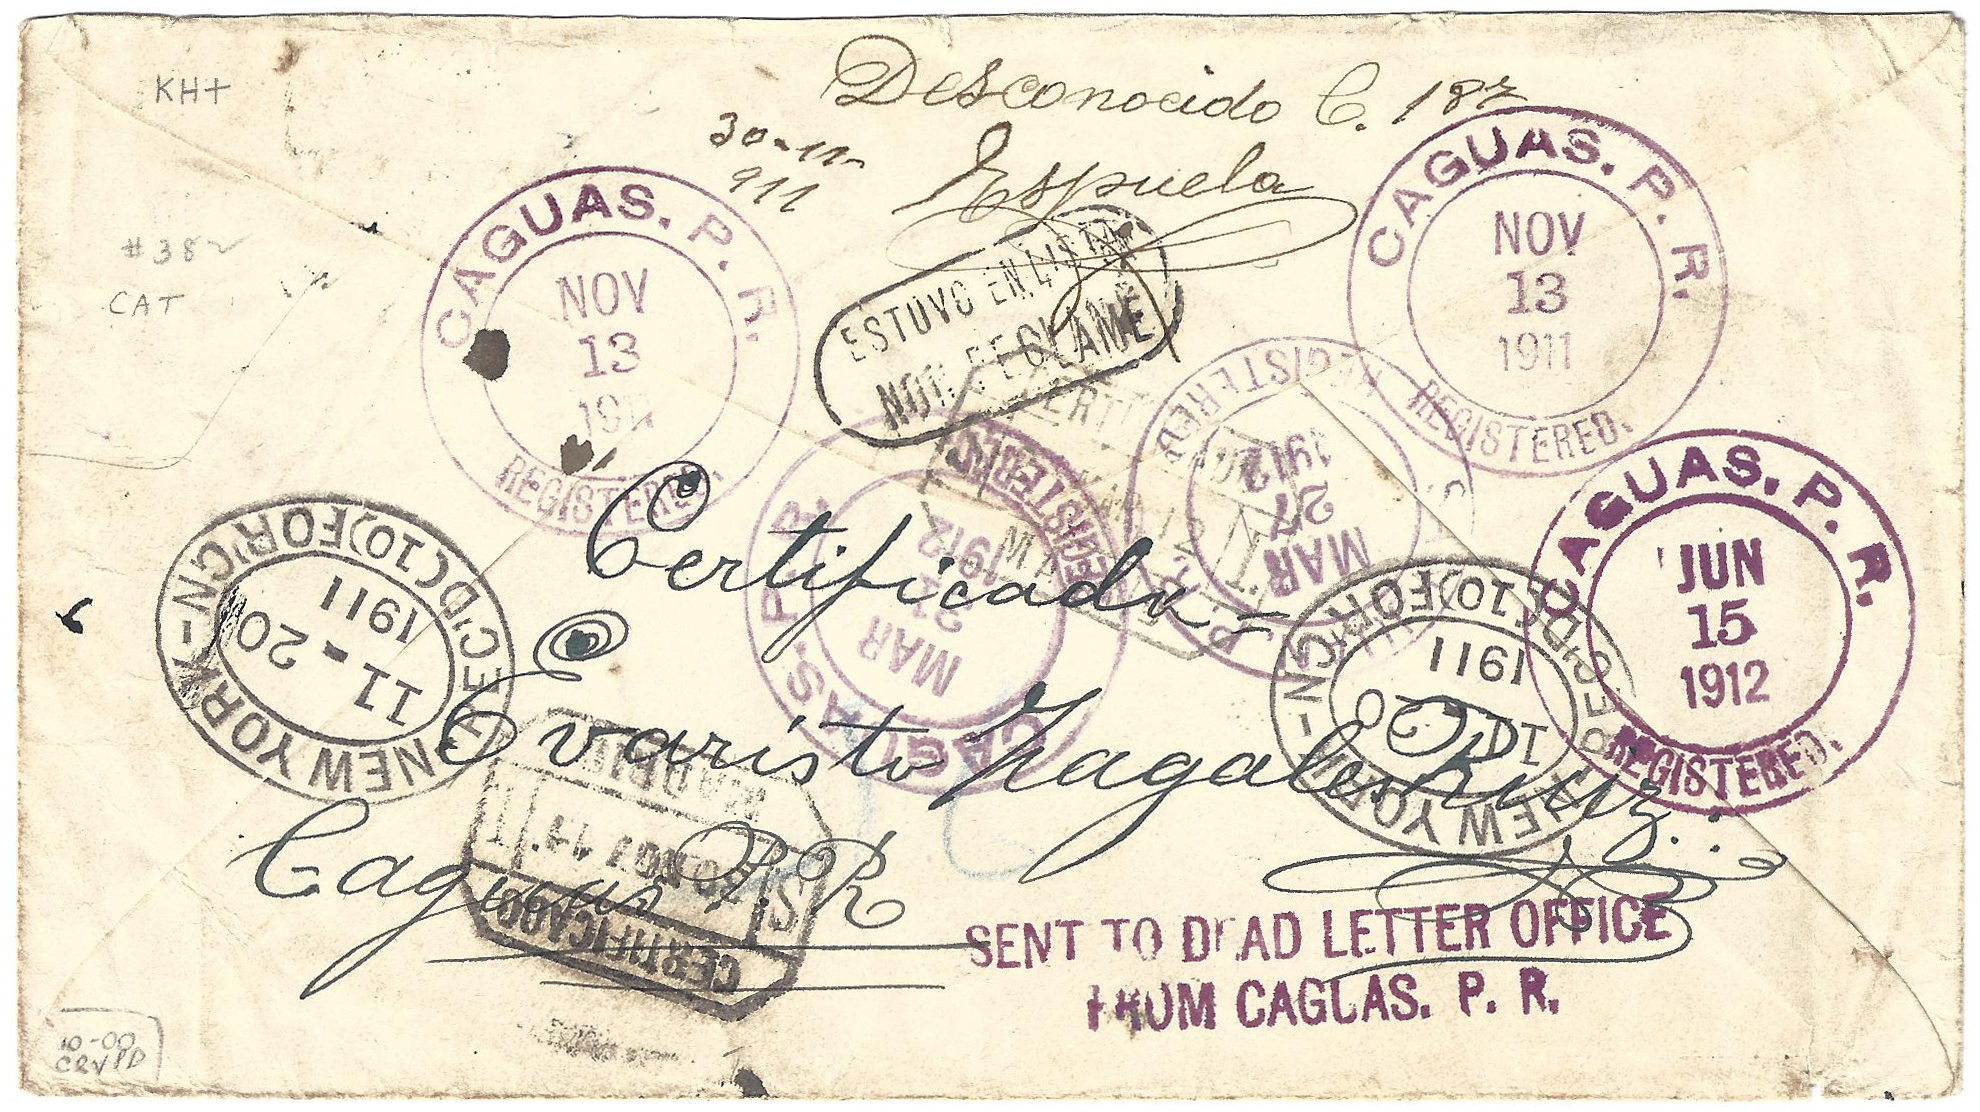 KH+
Desconocido C. 187
30-11-
911
Espuela
#382
CAT
CAGUAS. P. R.
NOV
13
1911
REGISTERED.
CAGUAS. P. R.
NOV
13
1911
REGISTERED.
ESTUVO EN LISTA
NO SE RECLAME
REGISTERED
MAR
27
1912
CAGUAS. P. R.
MAR
1912
REGISTERED
CAGUAS. P. R.
JUN
15
1912
REGISTERED.
NEW YORK-N
REC'D(10)FOR'GN
11-20
1911
NEW YORK-N
REC'D(10)FOR'GN
1911
Certificada-
Evaristo
Caguas P. R
CERTIFICADO
NO7 11
MADRID
SENT TO DEAD LETTER OFFICE
FROM CAGUAS. P. R.
10-00